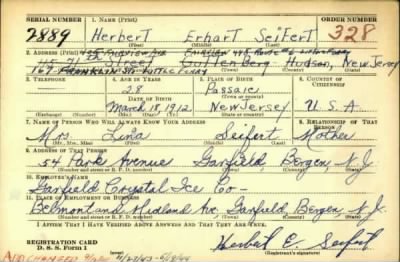 SERIAL NUMBER 1. NAME (Print) ORDER NUMBER
2889 Herbert Erhart Seifert 328
(First) (Middle) (Last)
2. ADDRESS (Print)
115 71st Street Guttenberg Hudson, New Jersey
167 Franklin St
3. TELEPHONE 4. AGE IN YEARS 5. PLACE OF BIRTH 6. COUNTRY OF CITIZENSHIP
28 Passaic
DATE OF BIRTH
March 18, 1912 New Jersey U.S.A.
(Mo.) (Day) (Yr.)
7. NAME OF PERSON WHO WILL ALWAYS KNOW YOUR ADDRESS 8. RELATIONSHIP OF THAT PERSON
Mrs. Lina Seifert Mother
(Mr., Mrs., Miss) (First) (Middle) (Last)
9. ADDRESS OF THAT PERSON
54 Park Avenue Garfield, Bergen, N.J.
(Number and street or R. F. D. number) (Town) (County) (State)
10. EMPLOYER'S NAME
Garfield Crystal Ice Co-
11. PLACE OF EMPLOYMENT OR BUSINESS
Belmont and Midland Ave. Garfield Bergen N.J.
(Number and street or R. F. D. number) (Town) (County) (State)
I AFFIRM THAT I HAVE VERIFIED ABOVE ANSWERS AND THAT THEY ARE TRUE.
REGISTRATION CARD
D. S. S. Form 1 Herbert E. Seifert
(Registrant's signature)